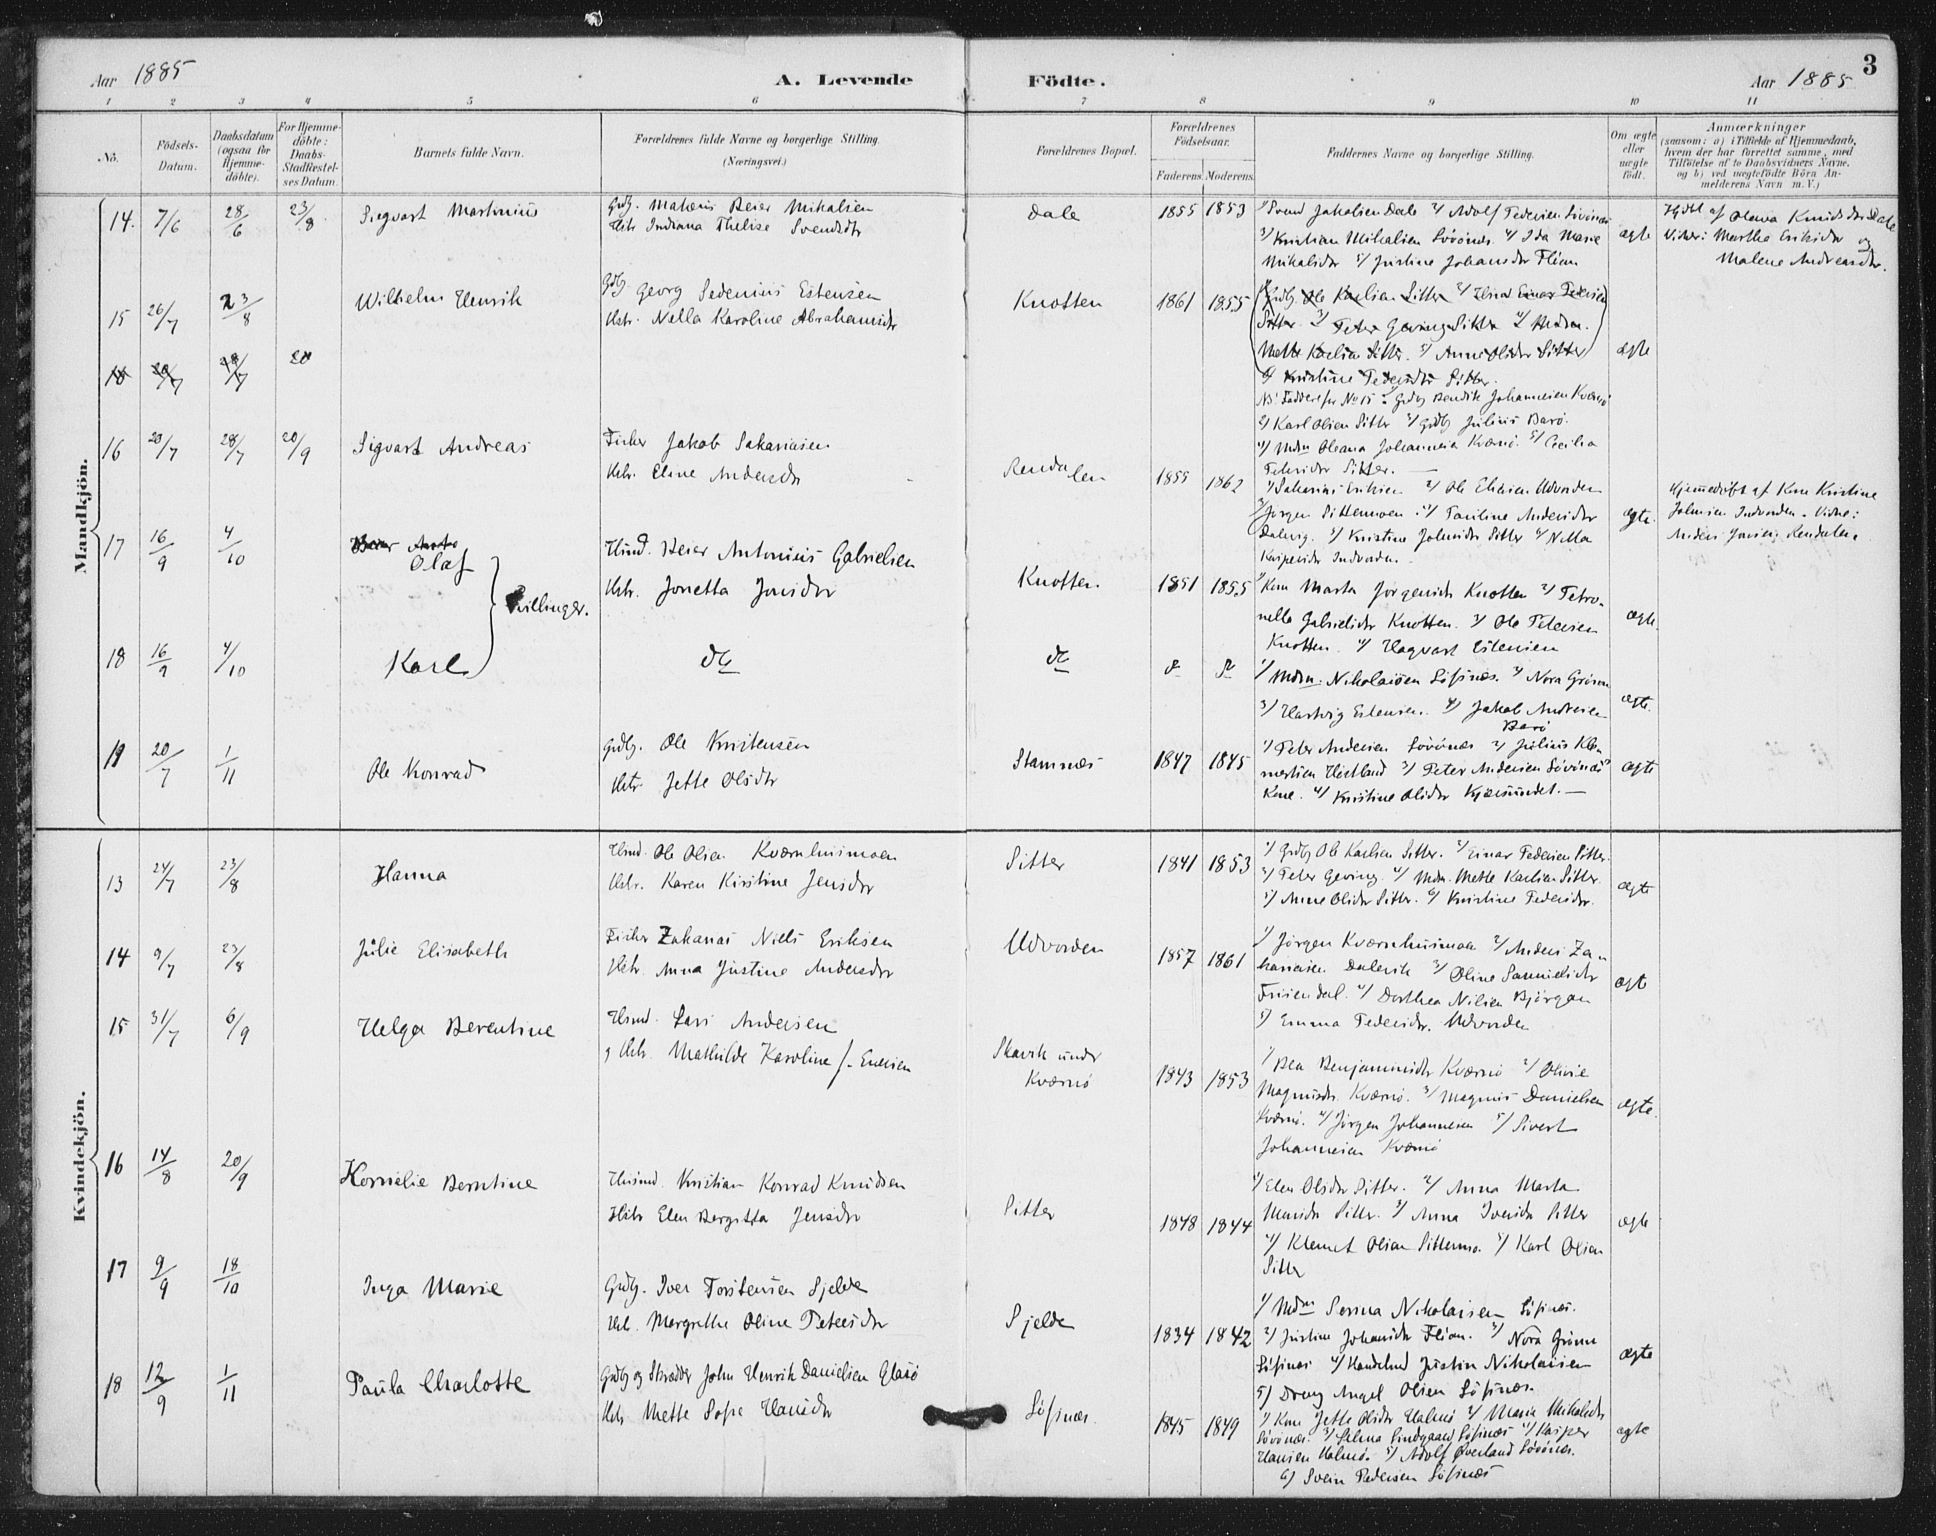 Aar 1885
A. Levende
Födte.
Aar 1885
3
1 2 3 4 5 6 7 8 9 10 11
No.
Födsels-
Datum.
Daabsdatum
(ogsaa for
Hjemme-
döbte).
For Hjemme-
döbte:
Daabs-
Stadfæstel-
ses Datum.
Barnets fulde Navn.
Forældrenes fulde Navne og borgerlige Stilling.
(Næringsvei.)
Forældrenes Bopæl.
Forældrenes
Födselsaar.
Faderens. Moderens.
Faddernes Navne og borgerlige Stilling.
Om ægte
eller
uægte
födt.
Anmærkninger
(saasom: a) i Tilfælde af Hjemmedaab,
hvem der har forrettet samme, med
Tilföielse af to Daabsvidners Navne,
og b) ved uægtefödte Börn An-
melderens Navn m. V.)
Mandkjön.
14. 7/6 28/6 23/8 Sigvart Martinius
Gdbr. Mateus Beier Mikalsen
Hstr Indiana Thelise Svendsdtr
Dale 1855 1853
1/ Svend Jakobsen Dale 2/ Adolf Pedersen Sövönes
3/ Kristian Mikalsen Sövönes. 4/ Ida Marie
Mikalsdtr 5/ Justine Johansdtr Flian
ægte
Hjdbt af Olava Knudsdtr Dale
Vidner: Martha Eriksdtr og
Malene Andreasdtr.
15 26/7 23/8 Wilhelm Henrik
Gdbr Georg Pedenius Estensen
Hstr. Nella Karoline Abrahamsdtr
Knotten 1861 1855
Gdbr Ole Karlsen Sitter 2/ Einar Pedersen
Sitter. 3/ Peter Geving Sitter 4/ Madm.
Mette Karlsen Sitter. 5/ Anne Olsdtr Sitter
6/ Kristine Pedersdtr Sitter.
ægte
18 20/7 28/7 20
NB! Faddere for No 15: 1/ Gdbr Bendik Johannesen Kværnö
2/ Karl Olsen Sitter 3/ Gdbr Julius Barö.
4/ Mdm Oleana Johannesen Kværnö. 5/ Cecilia
Petersdtr Sitter.
16 20/7 28/7 20/9 Sigvart Andreas
Fisker Jakob Sakariasen
Hstr. Eline Andersdtr
Rendalen 1855 1862
1/ Sakarias Eriksen 2/ Ole Eliasen Udvorden
3/ Jörgen Sittermoen. 4/ Pauline Andersdtr
Dalevig. 5/ Kristine Johnsdtr Sitter 6/ Nella
Kaspersdtr Indvorden.
ægte.
Hjemmedöbt af Kone Kristine
Johnsen Indvorden. Vidne:
Anders Jonsen, Rendalen.
17 16/9 4/10
Olaf
Tvillinger.
Hsmd. Beier Antonius Gabrielsen
Hstr. Jonetta Jonsdtr
Knotten. 1851 1855
1/ Kone Marta Jörgensdtr Knotten 2/ Petro-
nelle Gabrielsdtr Knotten. 3/ Ole Petersen
Knotten. 4/ Hagvart Estensen
ægte.
18 16/9 4/10
Karl
do do do do
1/ Mdm. Nikolaisen Löfsnæs. 2/ Nora Grönn
3/ Hartvig Estensen. 4/ Jakob Andresen
Barö
ægte.
19 20/7 1/11 Ole Konrad
Gdbr. Ole Kristensen
Hstr. Jette Olsdtr
Stamnæs 1847 1845
1/ Peter Andersen Sövönæs 2/ Julius Kle-
mertsen Hestland 3/ Peter Andersen Sövönæs's
Kone. 4/ Kristine Olsdtr Kjærsundet.
ægte
Kvindekjön.
13 24/7 23/8 Hanna
Hsmd. Ole Olsen Kværnhusmoen
Hstr. Karen Kirstine Jensdtr
Sitter 1841 1853
1/ Gdbr Ole Karlsen Sitter. 2/ Einar Pedersen Sitter.
3/ Peter Geving. 4/ Mdm. Mette Karlsen Sitter.
5/ Anne Olsdtr Sitter. 6/ Kristine Pedersdtr.
ægte
14 9/7 23/8 Julie Elisabeth
Fisker Zakarias Niels Eriksen
Hstr. Anna Justine Andersdtr
Udvorden 1857 1861
1/ Jörgen Kværnhusmoen 2/ Anders Za-
kariasen Dalevik 3/ Oline Samuelsdtr
Friisendal. 4/ Dorthea Nilsen Björgan
5/ Emma Pedersdtr. Udvorden
ægt
15 31/7 6/9 Helga Berentine
Hsmd. Lars Andersen
Hstr. Mathilde Karoline f. Enersen
Skavik under
Kværnö
1843 1853
1/ Bea Benjaminsdtr Kværnö 2/ Olivie
Magnusdtr. Kværnö. 3/ Magnus Danielsen
Kværnö. 4/ Jörgen Johannesen 5/ Sivert
Johannesen Kværnö
ægte.
16 14/8 20/9 Kornelie Berntine
Husmd. Kristian Konrad Knudsen
Hstr Elen Bergitta Jensdtr
Sitter 1848 1844
1/ Elen Olsdtr Sitter. 2/ Anna Marta
Mariusdtr Sitter. 3/ Anna Iversdtr Sitter
4/ Klemet Olsen Sittermo. 5/ Karl Olsen
Sitter
ægte
17 9/9 18/10 Inga Marie
Gdbr. Iver Torstensen Sjelde
Hstr. Margrethe Oline Petersdtr
Sjelde 1834 1842
1/ Mdm Serina Nikolaisen Löfsnæs.
2/ Justine Johansdtr Flian. 3/ Nora Grönn
Löfsnæs 4/ Handelsmd Justin Nikolaisen
5/ Dreng Angel Olsen Löfsnæs.
ægte
18 12/9 1/11 Paula Charlotte
Gdbr og Skrædder John Henrik Danielsen Glasö
Hstr Mette Sofie Hansdtr
Löfsnæs. 1845 1849
1/ Kone Jette Olsdtr Halmö 2/ Marie Mikalsdtr
Sövönæs. 3/ Selma Lindgaard Löfsnæs 4/ Kasper
Hansen Halmö. 5/ Adolf Överland Sövönæs.
6/ Svein Pedersen Löfsnæs
ægte